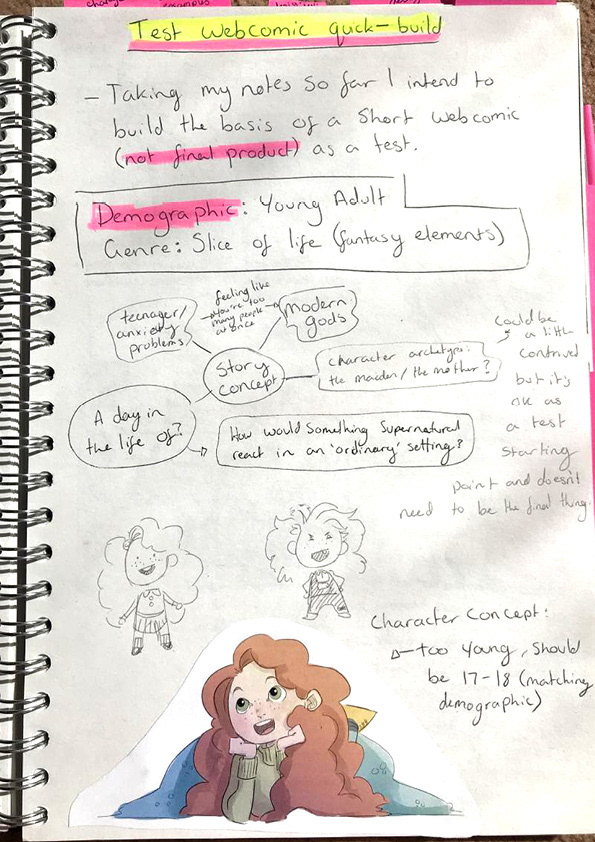 Test webcomic quick-build
- Taking my notes so far I intend to
build the basis of a short webcomic
(not final product) as a test.
Demographic: Young Adult
Genre: Slice of life (fantasy elements)
teenager/
anxiety
problems
feeling like
you're too
many people
at once
modern
gods
Story
concept
character archetype:
the maiden/the mother?
could be
a little
contrived
but it's
ok as
a test
starting
point and doesn't
need to be the final thing.
A day in
the life of?
How would something supernatural
react in an 'ordinary' setting?
Character Concept:
too young, should
be 17-18 (matching
demographic)